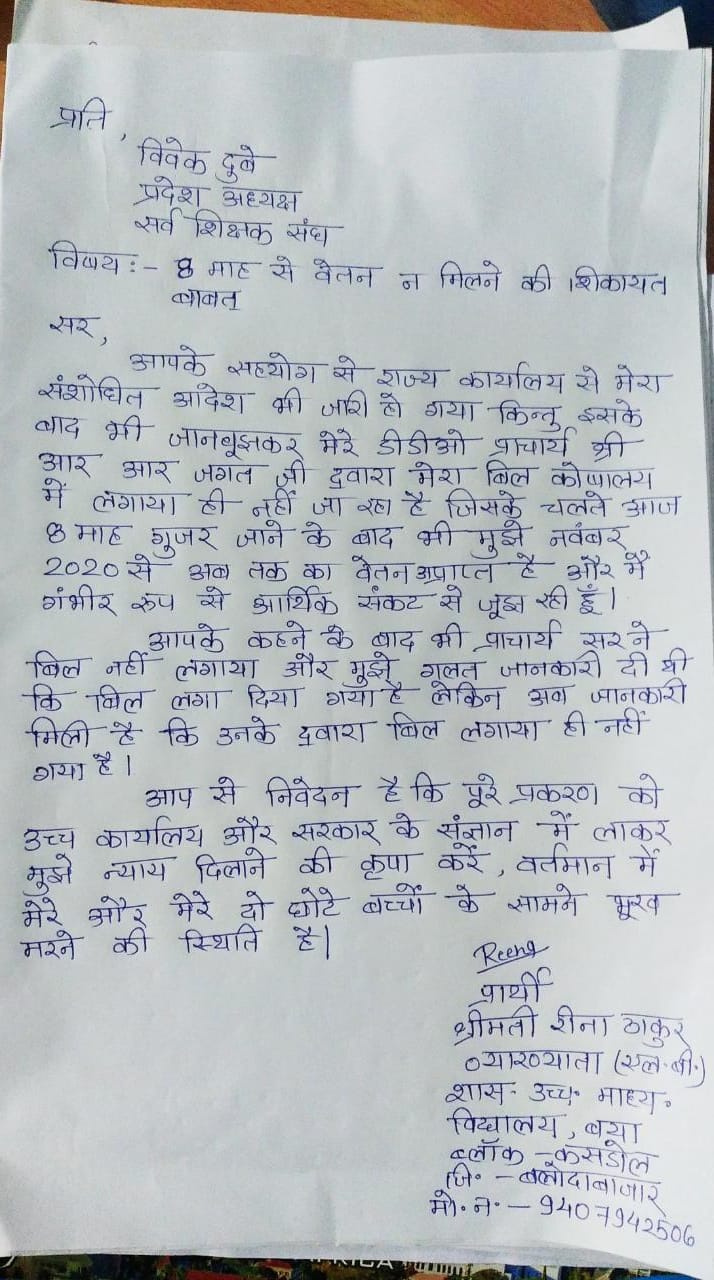 प्रति,
विवेक दुबे
प्रदेश अध्यक्ष
सर्व शिक्षक संघ
विषय:- 8 माह से वेतन न मिलने की शिकायत
बाबत्
सर,
आपके सहयोग से राज्य कार्यालय से मेरा
संशोधित आदेश भी जारी हो गया किन्तु इसके
बाद भी जानबूझकर मेरे डीडीओ प्राचार्य श्री
आर आर जगत जी द्वारा मेरा बिल कोषालय
में लगाया ही नहीं जा रहा है जिसके चलते आज
8 माह गुजर जाने के बाद भी मुझे नवंबर
2020 से अब तक का वेतन अप्राप्त है और मैं
गंभीर रूप से आर्थिक संकट से जूझ रही हूँ।
आपके कहने के बाद भी प्राचार्य सर ने
बिल नहीं लगाया और मुझे गलत जानकारी दी थी
कि बिल लगा दिया गया है लेकिन अब जानकारी
मिली है कि उनके द्वारा बिल लगाया ही नहीं
गया है।
आप से निवेदन है कि पूरे प्रकरण को
उच्च कार्यालय और सरकार के संज्ञान में लाकर
मुझे न्याय दिलाने की कृपा करें, वर्तमान में
मेरे और मेरे दो छोटे बच्चों के सामने भूख
मरने की स्थिति है।
Reena
प्रार्थी
श्रीमती रीना ठाकुर
व्याख्याता (एल.बी.)
शास. उच्च. माध्य.
विद्यालय, बया
ब्लॉक - कसडोल
जि. - बलौदाबाजार
मो. न. - 9407942506